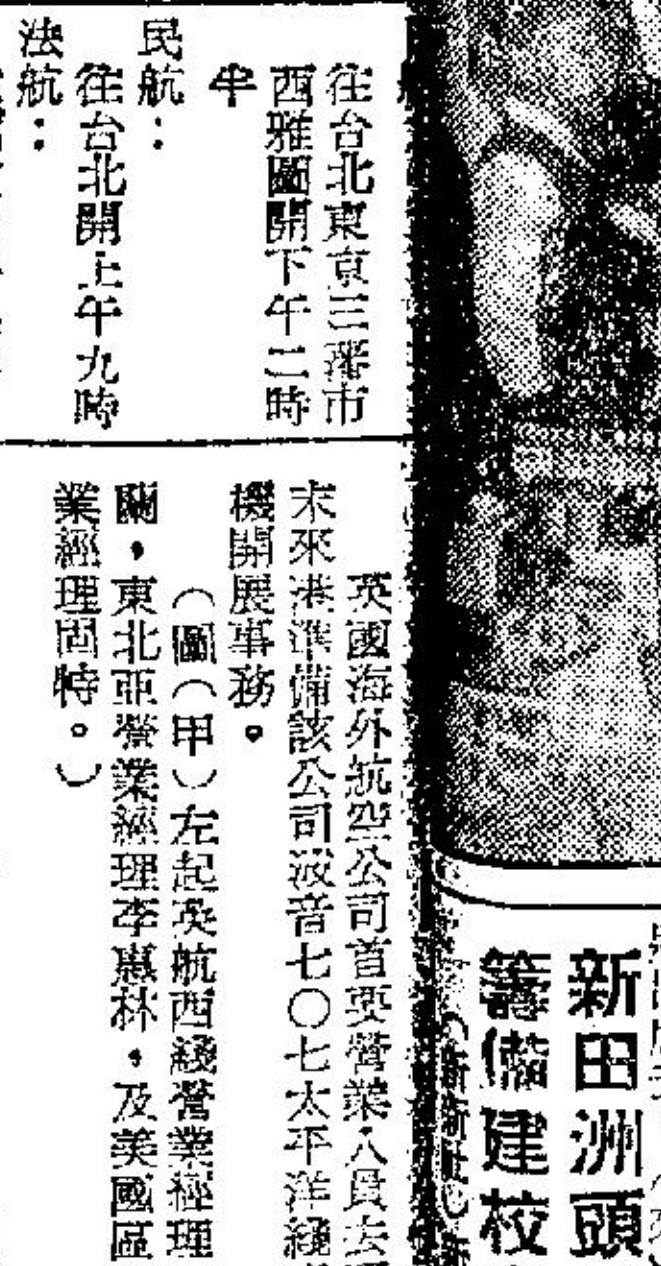 往台北東京三藩市
西雅圖開下午二時
半
民航：
往台北開上午九時
法航：
英國海外航空公司首要營業人員去
末來港準備該公司波音七〇七太平洋綫
機開展事務。
（圖（甲）左起英航西綫營業經理
蘭，東北亞營業經理李惠林，及美國區
業經理固特。）
新田洲頭
籌備建校